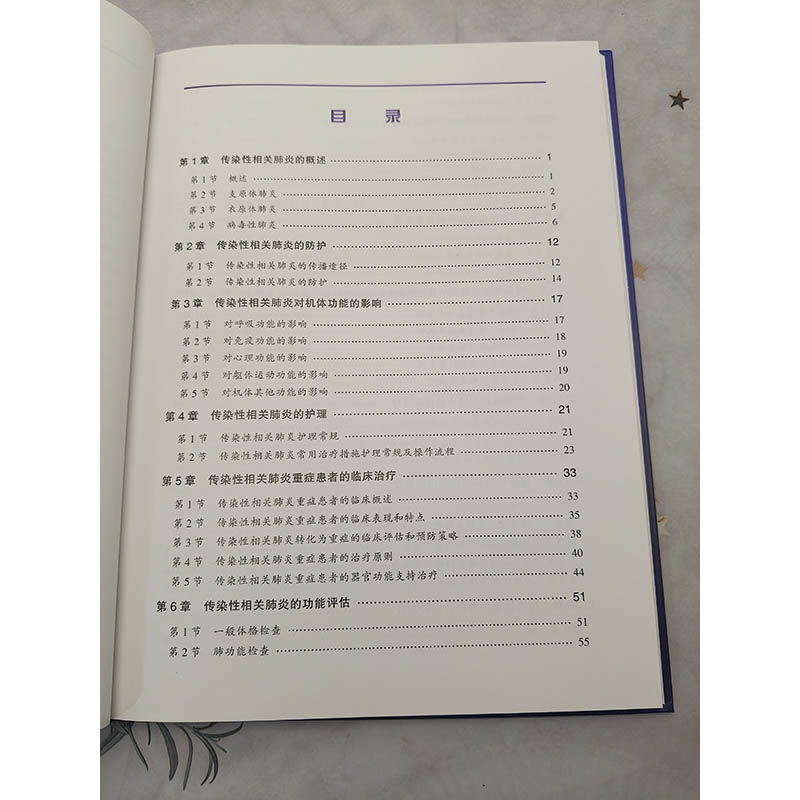 目 录
第1章 传染性相关肺炎的概述 1
第1节 概述 1
第2节 支原体肺炎 2
第3节 衣原体肺炎 5
第4节 病毒性肺炎 6
第2章 传染性相关肺炎的防护 12
第1节 传染性相关肺炎的传播途径 12
第2节 传染性相关肺炎的防护 14
第3章 传染性相关肺炎对机体功能的影响 17
第1节 对呼吸功能的影响 17
第2节 对免疫功能的影响 18
第3节 对心理功能的影响 19
第4节 对躯体运动功能的影响 19
第5节 对机体其他功能的影响 20
第4章 传染性相关肺炎的护理 21
第1节 传染性相关肺炎护理常规 21
第2节 传染性相关肺炎常用治疗措施护理常规及操作流程 23
第5章 传染性相关肺炎重症患者的临床治疗 33
第1节 传染性相关肺炎重症患者的临床概述 33
第2节 传染性相关肺炎重症患者的临床表现和特点 35
第3节 传染性相关肺炎转化为重症的临床评估和预防策略 38
第4节 传染性相关肺炎重症患者的治疗原则 40
第5节 传染性相关肺炎重症患者的器官功能支持治疗 44
第6章 传染性相关肺炎的功能评估 51
第1节 一般体格检查 51
第2节 肺功能检查 55